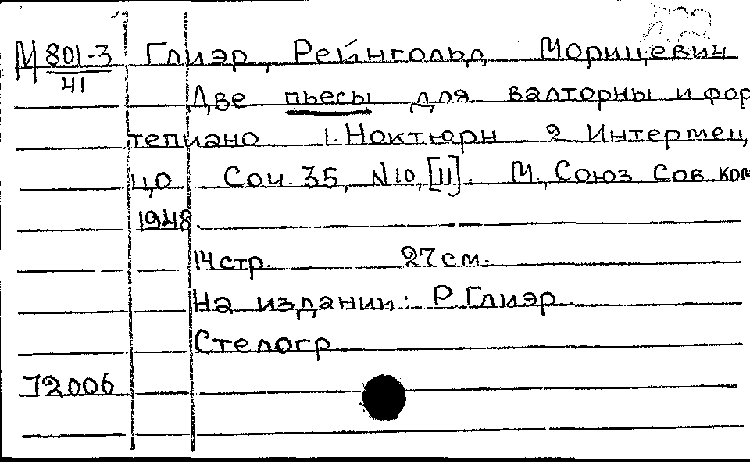 М 801-3 Глиэр, Рейнгольд Морицевич
41
Две пьесы для валторны и фор
тепиано 1. Ноктюрн 2 Интермец
цо Соч. 35, N10, [11]. М., Союз Сов. ком
1948
14 стр. 27 см.
На издании: Р. Глиэр
Стеклогр
72006